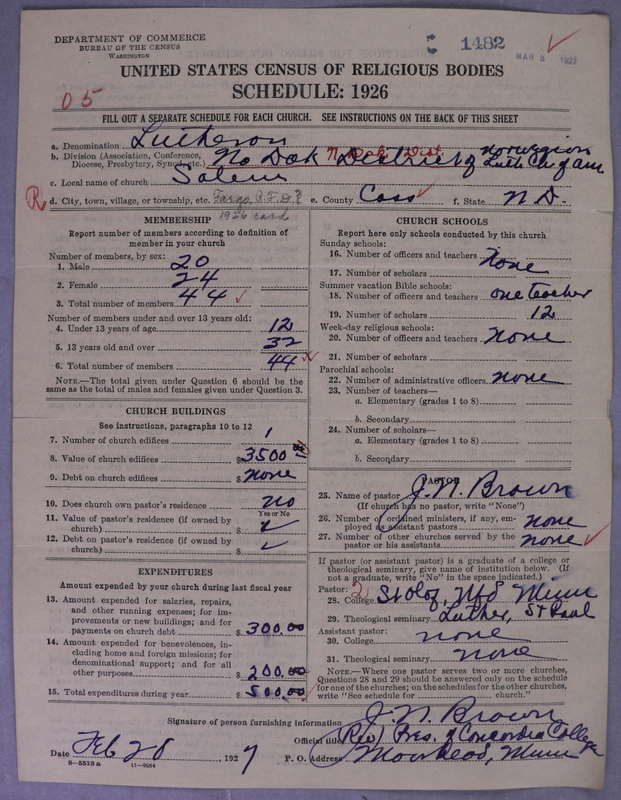 DEPARTMENT OF COMMERCE
BUREAU OF THE CENSUS
WASHINGTON
1482
MAR 3 1927
UNITED STATES CENSUS OF RELIGIOUS BODIES
SCHEDULE: 1926
05
FILL OUT A SEPARATE SCHEDULE FOR EACH CHURCH. SEE INSTRUCTIONS ON THE BACK OF THIS SHEET
a. Denomination Lutheran
b. Division (Association, Conference, Diocese, Presbytery, Synod, etc.) No Dak District of Norwegian Luth Ch of am
N. Dak. Dist.
c. Local name of church Salem
R d. City, town, village, or township, etc. Fargo R.F.D.? e. County Cass f. State N D.
1926 card
MEMBERSHIP
Report number of members according to definition of member in your church
Number of members, by sex:
1. Male 20
2. Female 24
3. Total number of members 44
Number of members under and over 13 years old:
4. Under 13 years of age 12
5. 13 years old and over 32
6. Total number of members 44
NOTE.—The total given under Question 6 should be the same as the total of males and females given under Question 3.
CHURCH BUILDINGS
See instructions, paragraphs 10 to 12
7. Number of church edifices 1
8. Value of church edifices $3500
9. Debt on church edifices $none
10. Does church own pastor's residence no
Yes or No
11. Value of pastor's residence (if owned by church) $
12. Debt on pastor's residence (if owned by church) $
EXPENDITURES
Amount expended by your church during last fiscal year
13. Amount expended for salaries, repairs, and other running expenses; for improvements or new buildings; and for payments on church debt $300.00
14. Amount expended for benevolences, including home and foreign missions; for denominational support; and for all other purposes $200.00
15. Total expenditures during year $500.00
CHURCH SCHOOLS
Report here only schools conducted by this church
Sunday schools:
16. Number of officers and teachers none
17. Number of scholars
Summer vacation Bible schools:
18. Number of officers and teachers one teacher
19. Number of scholars 12
Week-day religious schools:
20. Number of officers and teachers none
21. Number of scholars
Parochial schools:
22. Number of administrative officers none
23. Number of teachers—
a. Elementary (grades 1 to 8)
b. Secondary
24. Number of scholars—
a. Elementary (grades 1 to 8)
b. Secondary
PASTOR
25. Name of pastor J. N. Brown
(If church has no pastor, write "None")
26. Number of ordained ministers, if any, employed as assistant pastors none
27. Number of other churches served by the pastor or his assistants none
If pastor (or assistant pastor) is a graduate of a college or theological seminary, give name of institution below. (If not a graduate, write "No" in the space indicated.)
Pastor: 2
28. College St Olaf, Nfd Minn
29. Theological seminary Luther, St Paul
Assistant pastor:
30. College none
31. Theological seminary none
NOTE.—Where one pastor serves two or more churches, Questions 28 and 29 should be answered only on the schedule for one of the churches; on the schedules for the other churches, write "See schedule for church."
Signature of person furnishing information J. N. Brown
Official title (Rev) Pres. of Concordia College
Date Feb 28, 1927 P. O. Address Moorhead, Minn
8—5518 a 11—9084